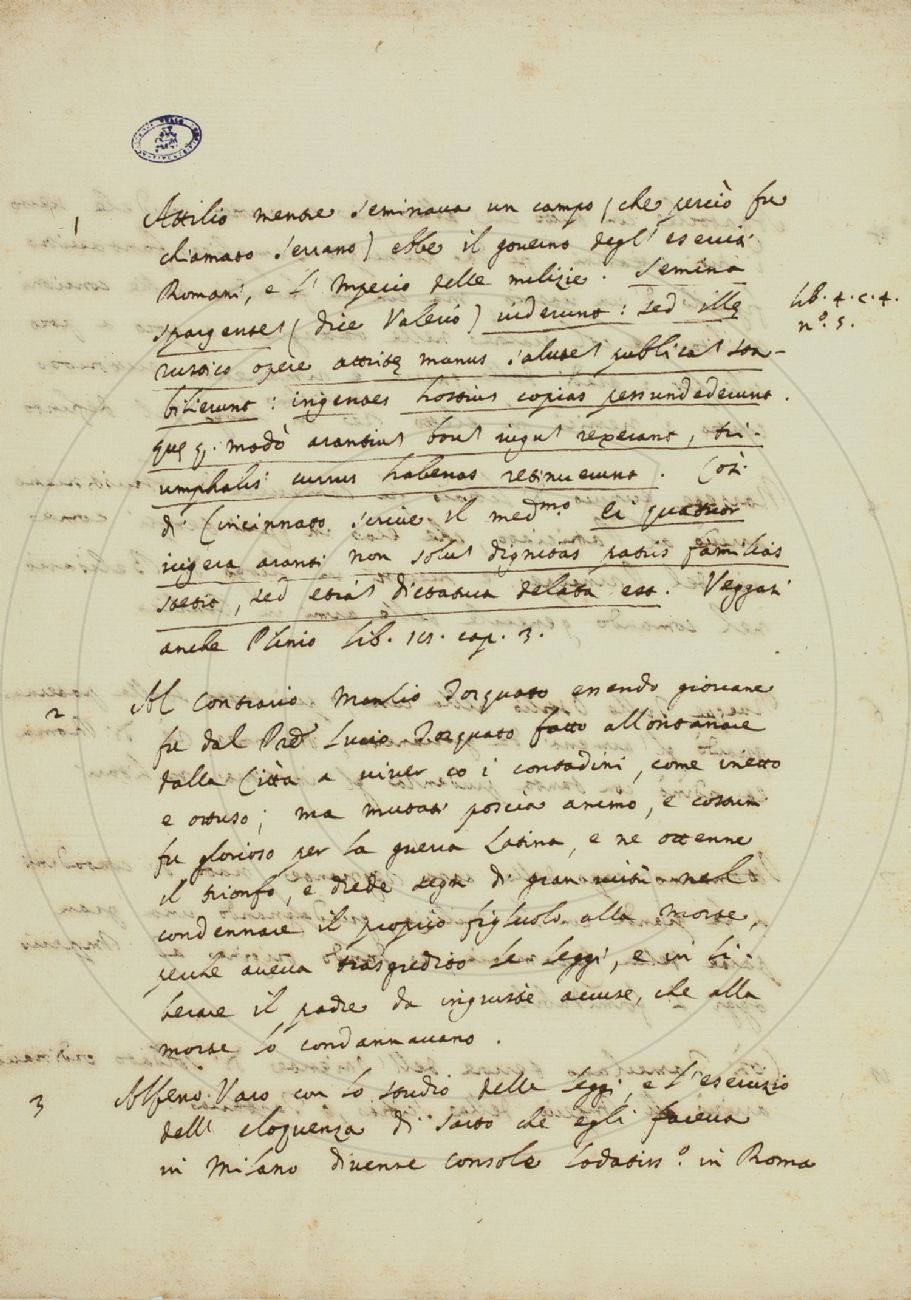 1
Attilio mentre seminava un campo (che perciò fu
chiamato Serrano) ebbe il governo degl' eserciti
Romani, e l' Imperio delle milizie. Semina
spargentē (dice Valerio) viderunt: sed illę
lib. 4. c. 4.
n.º 5.
rustico opere attritę manus salutē publicā sta-
bilierunt: ingentes hostiū copias pessundederunt.
quę q; modò arantiū boū iugū rexerant, tri-
umphalis currus habenas retinuerunt. Così
di Cincinnato scrive il medmo. ei quatuor
iugera aranti non solū dignitas patris familias
stetit, sed etiā dictatura delata est. Veggasi
anche Plinio lib. 18. cap. 3.
2
Al contrario Manlio Torquato essendo giovane
fu dal Pred Lucio Torquato fatto allontanare
dalla Città a viver cō i contadini, come inetto
e ottuso; ma mutati poscia animo, e costumi
fu glorioso per la guerra Latina, e ne ottenne
il trionfo, e diede segni di gran virtù nel
condennare il proprio figliuolo alla morte,
perchè aveva trasgredito le leggi, e in li-
berare il padre da ingiuste accuse, che alla
morte lo condannavano.
3
Alfeno Varo con lo studio delle leggi, e l'esercizio
dell' eloquenza di sarto che egli faceva
in Milano divenne console lodatiss.º in Roma